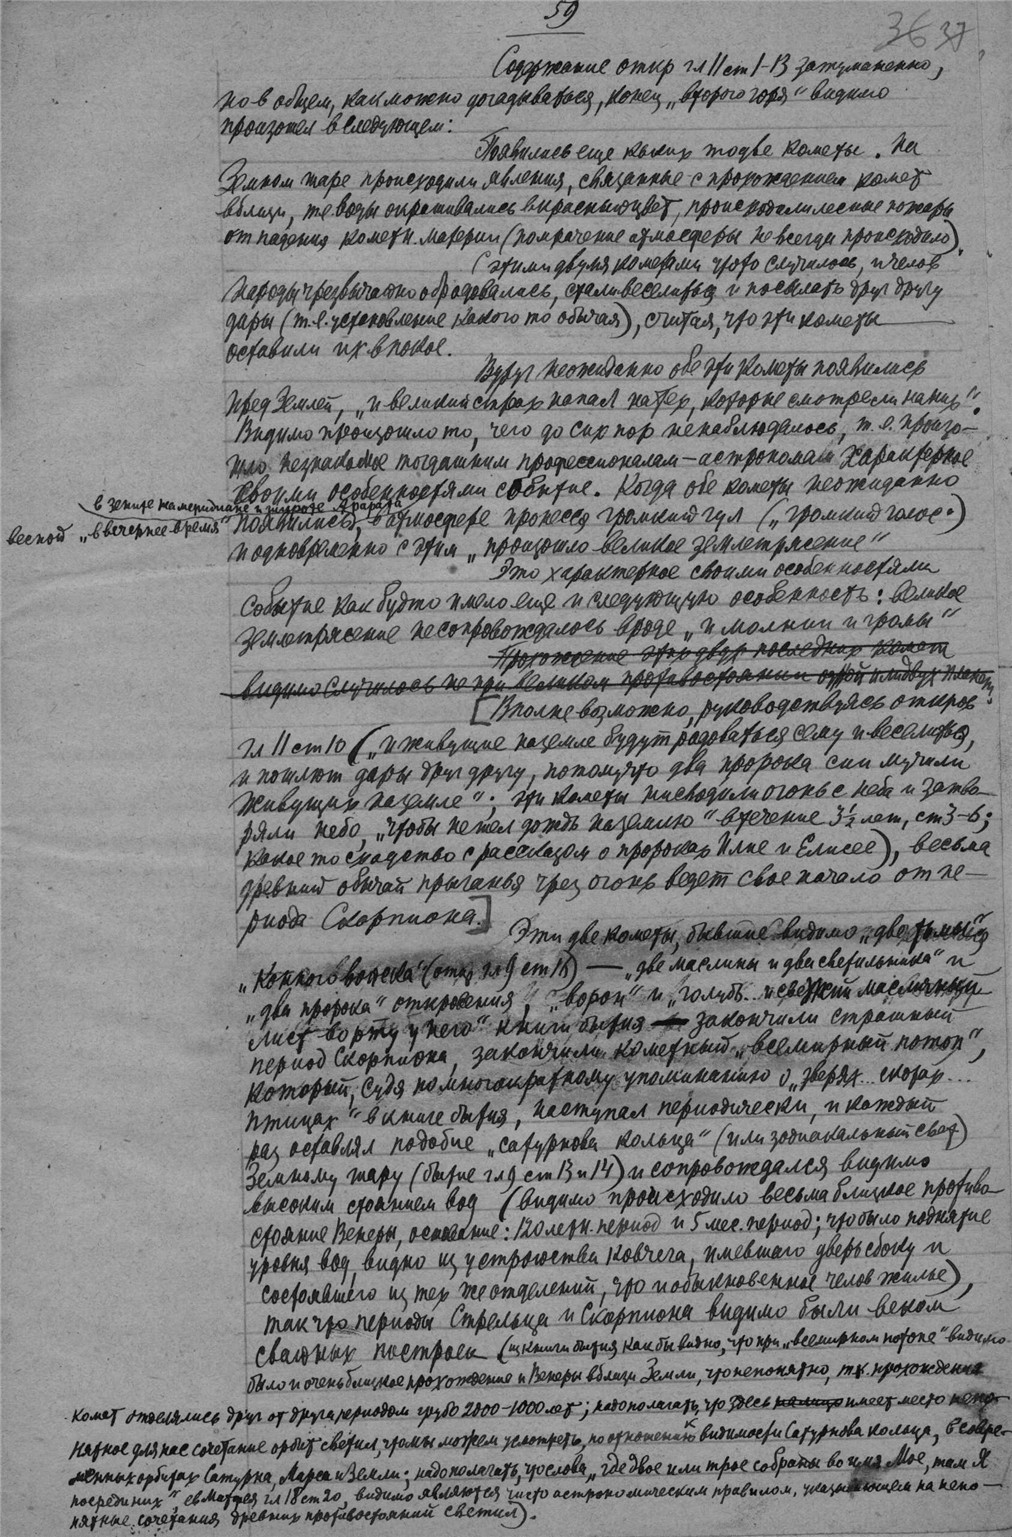 59
36 37
Содержание откр гл 11 ст 1-13 затуманенно,
но в общем, как можно догадываться, конец „второго горя“ видимо
произошел в следующем:
Появились еще каких то две кометы. На
Земном шаре происходили явления, связанные с прохождением комет
вблизи, те воды окрашивались в красный цвет, происходили лесные пожары
от падения кометн. материи (помрачение атмосферы не всегда происходило).
С этими двумя кометами что то случилось, и челов
народы чрезвычайно обрадовались, стали веселиться и посылать друг другу
дары (т.е. установление какого то обычая), считая, что эти кометы
оставили их в покое.
Вдруг неожиданно обе эти кометы появились
пред Землей, „и великий страх напал на тех, которые смотрели на них“.
Видимо произошло то, чего до сих пор не наблюдалось, т.е. произо-
шло незнакомое тогдашним профессионалам-астрономам характерное
своими особенностями событие. Когда обе кометы неожиданно
в зените на меридиане и широте Арарата
весной „в вечернее время“ появились, в атмосфере пронесся громкий гул („громкий голос“)
и одновременно с этим „произошло великое землетрясение“
Это характерное своими особенностями
событие как будто имело еще и следующую особенность: великое
землетрясение не сопровождалось вроде „и молнии и громы“
Прохождение этих двух последних комет
видимо случилось не при великом противостоянии одной или двух планет.
[Вполне возможно, руководствуясь откров
гл 11 ст 10 („и живущие на земле будут радоваться сему и веселиться,
и пошлют дары друг другу, потому что два пророка сии мучили
живущих на земле“; эти кометы низводили огонь с неба и затво-
ряли небо, „чтобы не шел дождь на землю“ в течение 3½ лет, ст 3-6;
какое то сходство с рассказом о пророках Илие и Елисее), весьма
древний обычай прыганья чрез огонь ведет свое начало от пе-
риода Скорпиона.]
Эти две кометы, бывшие видимо „две тьмы
„конного войска“ (откр гл 9 ст 16) — „две маслины и два светильника“ и
„два пророка“ откровения, „ворон“ и „голубь... и свежий масличный
лист во рту у него“ книги бытия закончили страшный
период Скорпиона, закончили кометный „всемирный потоп“,
который, судя по многократному упоминанию о „зверях... скотах...
птицах“ в книге бытия, наступал периодически, и каждый
раз оставлял подобие „сатурнова кольца“ (или зодиакальный свет)
Земному шару (бытие гл 9 ст 13 и 14) и сопровождался видимо
высоким стоянием вод (видимо происходило весьма близкое противо-
стояние Венеры, основание: 120 летн. период и 5 мес. период; что было поднятие
уровня вод, видно из устройства ковчега, имевшего дверь сбоку и
состоявшего из тех же отделений, что и обыкновенное челов жилье),
так что периоды Стрельца и Скорпиона видимо были веком
свайных построек (из книги бытия как бы видно, что при „всемирном потопе“ видимо
было и очень близкое прохождение и Венеры вблизи Земли, что непонятно, т.к. прохождения
комет отделялись друг от друга периодом грубо 2000-1000 лет; надо полагать, что здесь имеет место непо-
нятное для нас сочетание орбит светил, что мы можем усмотреть, по отношению к видимости Сатурнова кольца, в совре-
менных орбитах Сатурна, Марса и Земли; надо полагать, что слова „где двое или трое собраны во имя Мое, там Я
посреди них“, ев Матфея гл 18 ст 20, видимо являются чисто астрономическим правилом, указывающем на непо-
нятные сочетания древних противостояний светил).